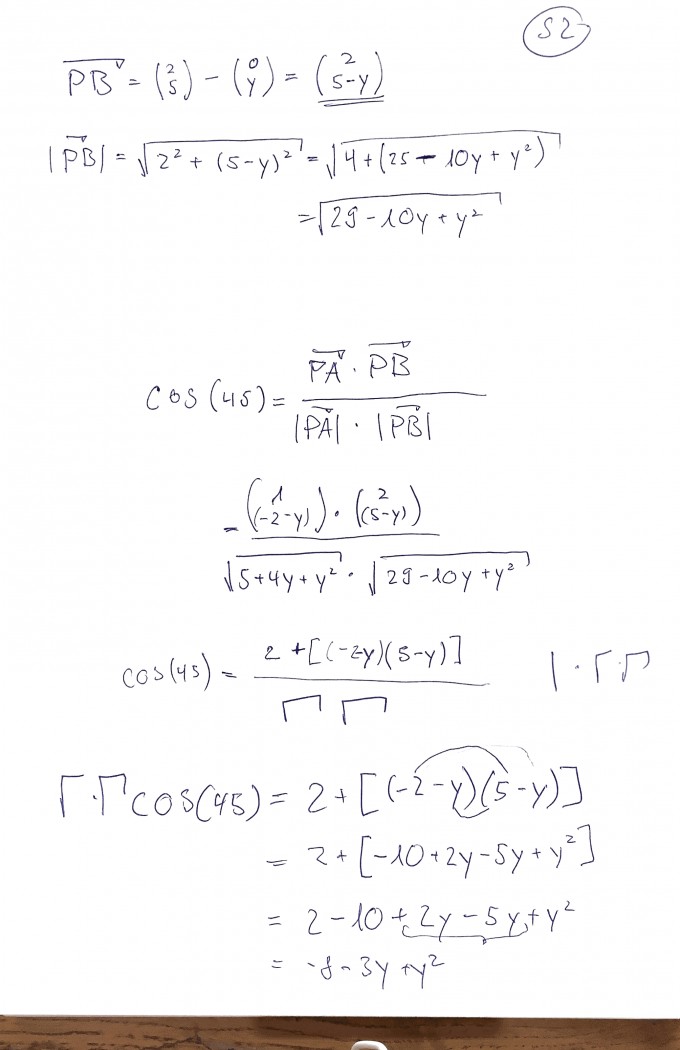 S2
PB = (2 5) - (0 y) = (2 5-y)
|PB| = √2² + (5-y)² = √4+(25-10y+y²)
= √29-10y+y²
cos(45) = PA · PB / |PA| · |PB|
= (1 (-2-y)) · (2 (5-y)) / √5+4y+y² · √29-10y+y²
cos(45) = 2+[(-2y)(5-y)] / √ √ | · √ · √
√ · √ cos(45) = 2+[(-2-y)(5-y)]
= 2+[-10+2y-5y+y²]
= 2-10+2y-5y+y²
= -8-3y+y²